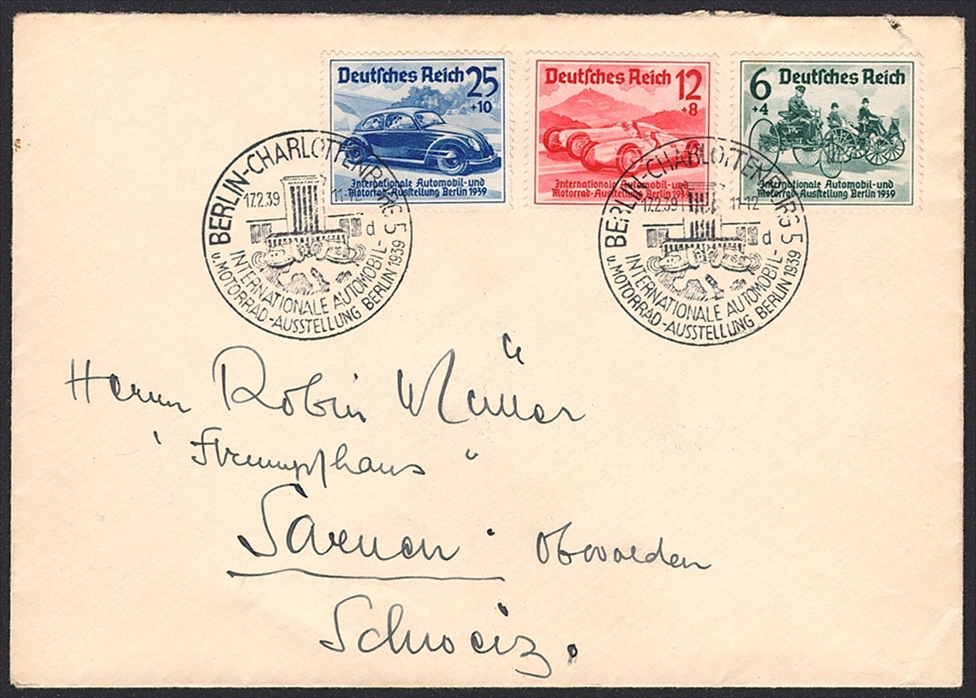 Deutsches Reich 25
+10
Internationale Automobil-und
Motorrad-Ausstellung Berlin 1939
Deutsches Reich 12
+8
Internationale Automobil-und
Motorrad-Ausstellung Berlin 1939
6 Deutsches Reich
+4
Internationale Automobil-und
Motorrad-Ausstellung Berlin 1939
BERLIN-CHARLOTTENBURG 5
17.2.39 11-12
d
INTERNATIONALE AUTOMOBIL-
u. MOTORRAD-AUSSTELLUNG BERLIN 1939
BERLIN-CHARLOTTENBURG 5
17.2.39 11-12
d
INTERNATIONALE AUTOMOBIL-
u. MOTORRAD-AUSSTELLUNG BERLIN 1939
Herrn Robin Müller
"Strumpfhaus"
Sarnen. Obwalden
Schweiz.